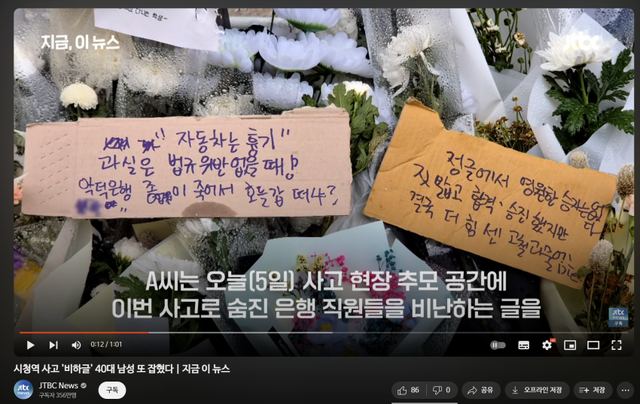 지금, 이 뉴스
jtbc
" 자동차는 흉기"
과실은 법규위반 없을 때!
악덕은행 종 이 죽어서 호들갑 떠나?
정글에서 영원한 승자는 없
짓밟고 합격·승진했지만
결국 더 힘 센
A씨는 오늘(5일) 사고 현장 추모 공간에
이번 사고로 숨진 은행 직원들을 비난하는 글을
jtbc
구독
0:12 / 1:01
시청역 사고 '비하글' 40대 남성 또 잡혔다 | 지금 이 뉴스
jtbc
JTBC News
구독자 356만명
구독
86
0
공유
오프라인 저장
저장